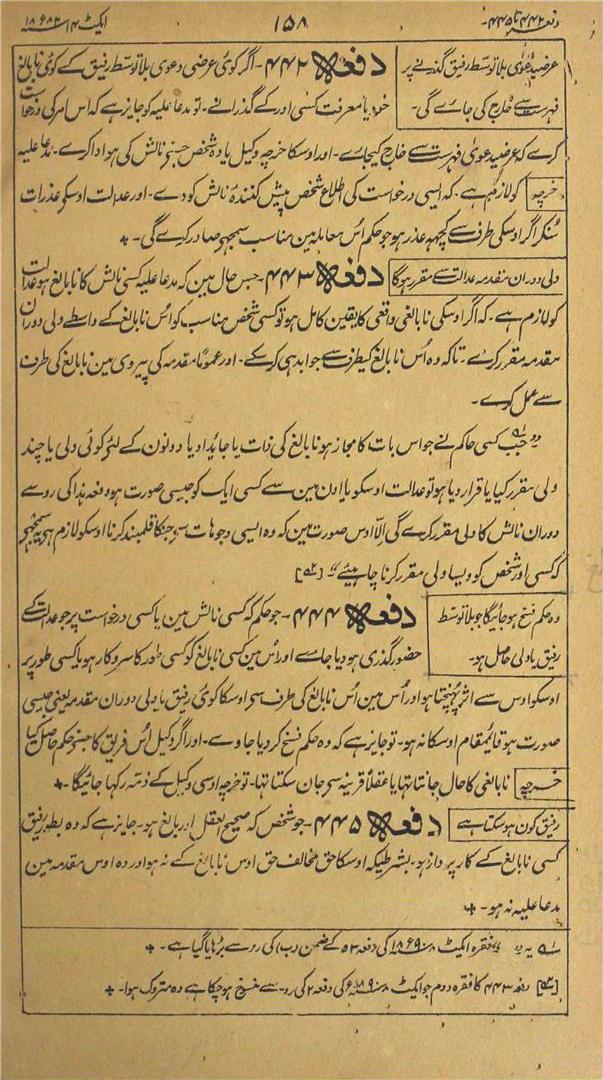 دفعہ ۴۴۲ تا ۴۴۵-
۱۵۸
ایکٹ ۱۴ ۱۸۸۲ء
عرضیدعوی بلاتوسط رفیق گذرنے پر
فہرست سے خارج کی جاے گی-
دفعہ ۴۴۲- اگر کوئی عرضی دعوی بلاتوسط رفیق کے کوئی نابالغ
خود یا معرفت کسی اور کے گذرانے- تو مدعا علیہ کو جایز ہے کہ اس امر کی درخواست
کرے کہ عرضیدعوی فہرست سے خارج کیجاے- اور اوسکا خرچہ وکیل یا وہ شخص جسنے نالش کی ہو ادا کرے- مدعا علیہ
خرچہ
کو لازم ہے- کہ ایسی درخواست کی اطلاع شخص پیش کنندۂ نالش کو دے- اور عدالت اوسکے عذرات
سنکر اگر اوسکی طرف سے کچھہ عذر ہو جو حکم اس معاملہ مین مناسب سمجھے صادر کرے گی-
ولی دوران مقدمہ عدالت سے مقرر ہوگا
دفعہ ۴۴۳- جس حال مین کہ مدعا علیہ کسی نالش کا نابالغ ہو عدالت
کو لازم ہے- کہ اگر اوسکی نابالغی واقعی کا یقین کامل ہو تو کسی شخص مناسب کو اس نابالغ کے واسطے ولی دوران
مقدمہ مقرر کرے- تاکہ وہ اس نابالغ کیطرف سے جوابدہی کر سکے- اور عموماً مقدمہ کی پیروی مین نابالغ کی طرف
سے عمل کرے-
جب کسی حاکم نے جو اس بات کا مجاز ہو نابالغ کی ذات یا جائداد یا دونون کے لئے کوئی ولی یا چند
ولی مقرر کیا یا قرار دیا ہو تو عدالت اوسکو یا اون مین سے کسی ایک کو جیسی صورت ہو دفعہ ہذا کی رو سے
دوران نالش کا ولی مقرر کرے گی اِلّا اوس صورت مین کہ وہ ایسی وجوہات سے جنکا قلمبند کرنا اوسکو لازم ہے یہ سمجھے
کہ کسی اور شخص کو ویسا ولی مقرر کرنا چاہیئے-
وہ حکم فسخ ہو جائیگا جو بلاتوسط
رفیق یا ولی حاصل ہو-
دفعہ ۴۴۴- جو حکم کہ کسی نالش مین یا کسی درخواست پر جو عدالت کے
حضور گذری ہو دیا جاے اور اس مین کسی نابالغ کو کسی طور کا سروکار ہو یا کسی طور پر
اوسکو اوس سے اثر پہنچتا ہو اور اس مین اس نابالغ کی طرف سے اوسکا کوئی رفیق یا ولی دوران مقدمہ یعنی جیسی
صورت ہو قائمقام اوسکا نہ ہو- تو جایز ہے کہ وہ حکم فسخ کر دیا جاوے- اور اگر وکیل اس فریق کا جسنے حکم حاصل کیا
خرچہ
نابالغی کا حال جانتا تھا یا عقلاً قرینہ سے جان سکتا تھا- تو خرچہ اوسی وکیل کے ذمہ رکھا جائیگا-
رفیق کون ہو سکتا ہے
دفعہ ۴۴۵- جو شخص کہ صحیح العقل اور بالغ ہو- جایز ہے کہ وہ بطور رفیق
کسی نابالغ کے کارپرداز ہو- بشرطیکہ اوسکا حق مخالف حق اوس نابالغ کے نہ ہو اور وہ اوس مقدمہ مین
مدعا علیہ نہ ہو-
یہ فقرہ ایکٹ ۸ ۱۸۹۰ء کی دفعہ ۵۳ کے ضمن (ب) کی رو سے بڑہایا گیا ہے-
دفعہ ۴۴۳ کا فقرہ دوم جو ایکٹ ۸ ۱۸۹۰ء کی دفعہ ۲ کی رو سے منسوخ ہو چکا ہے وہ متروک ہوا-